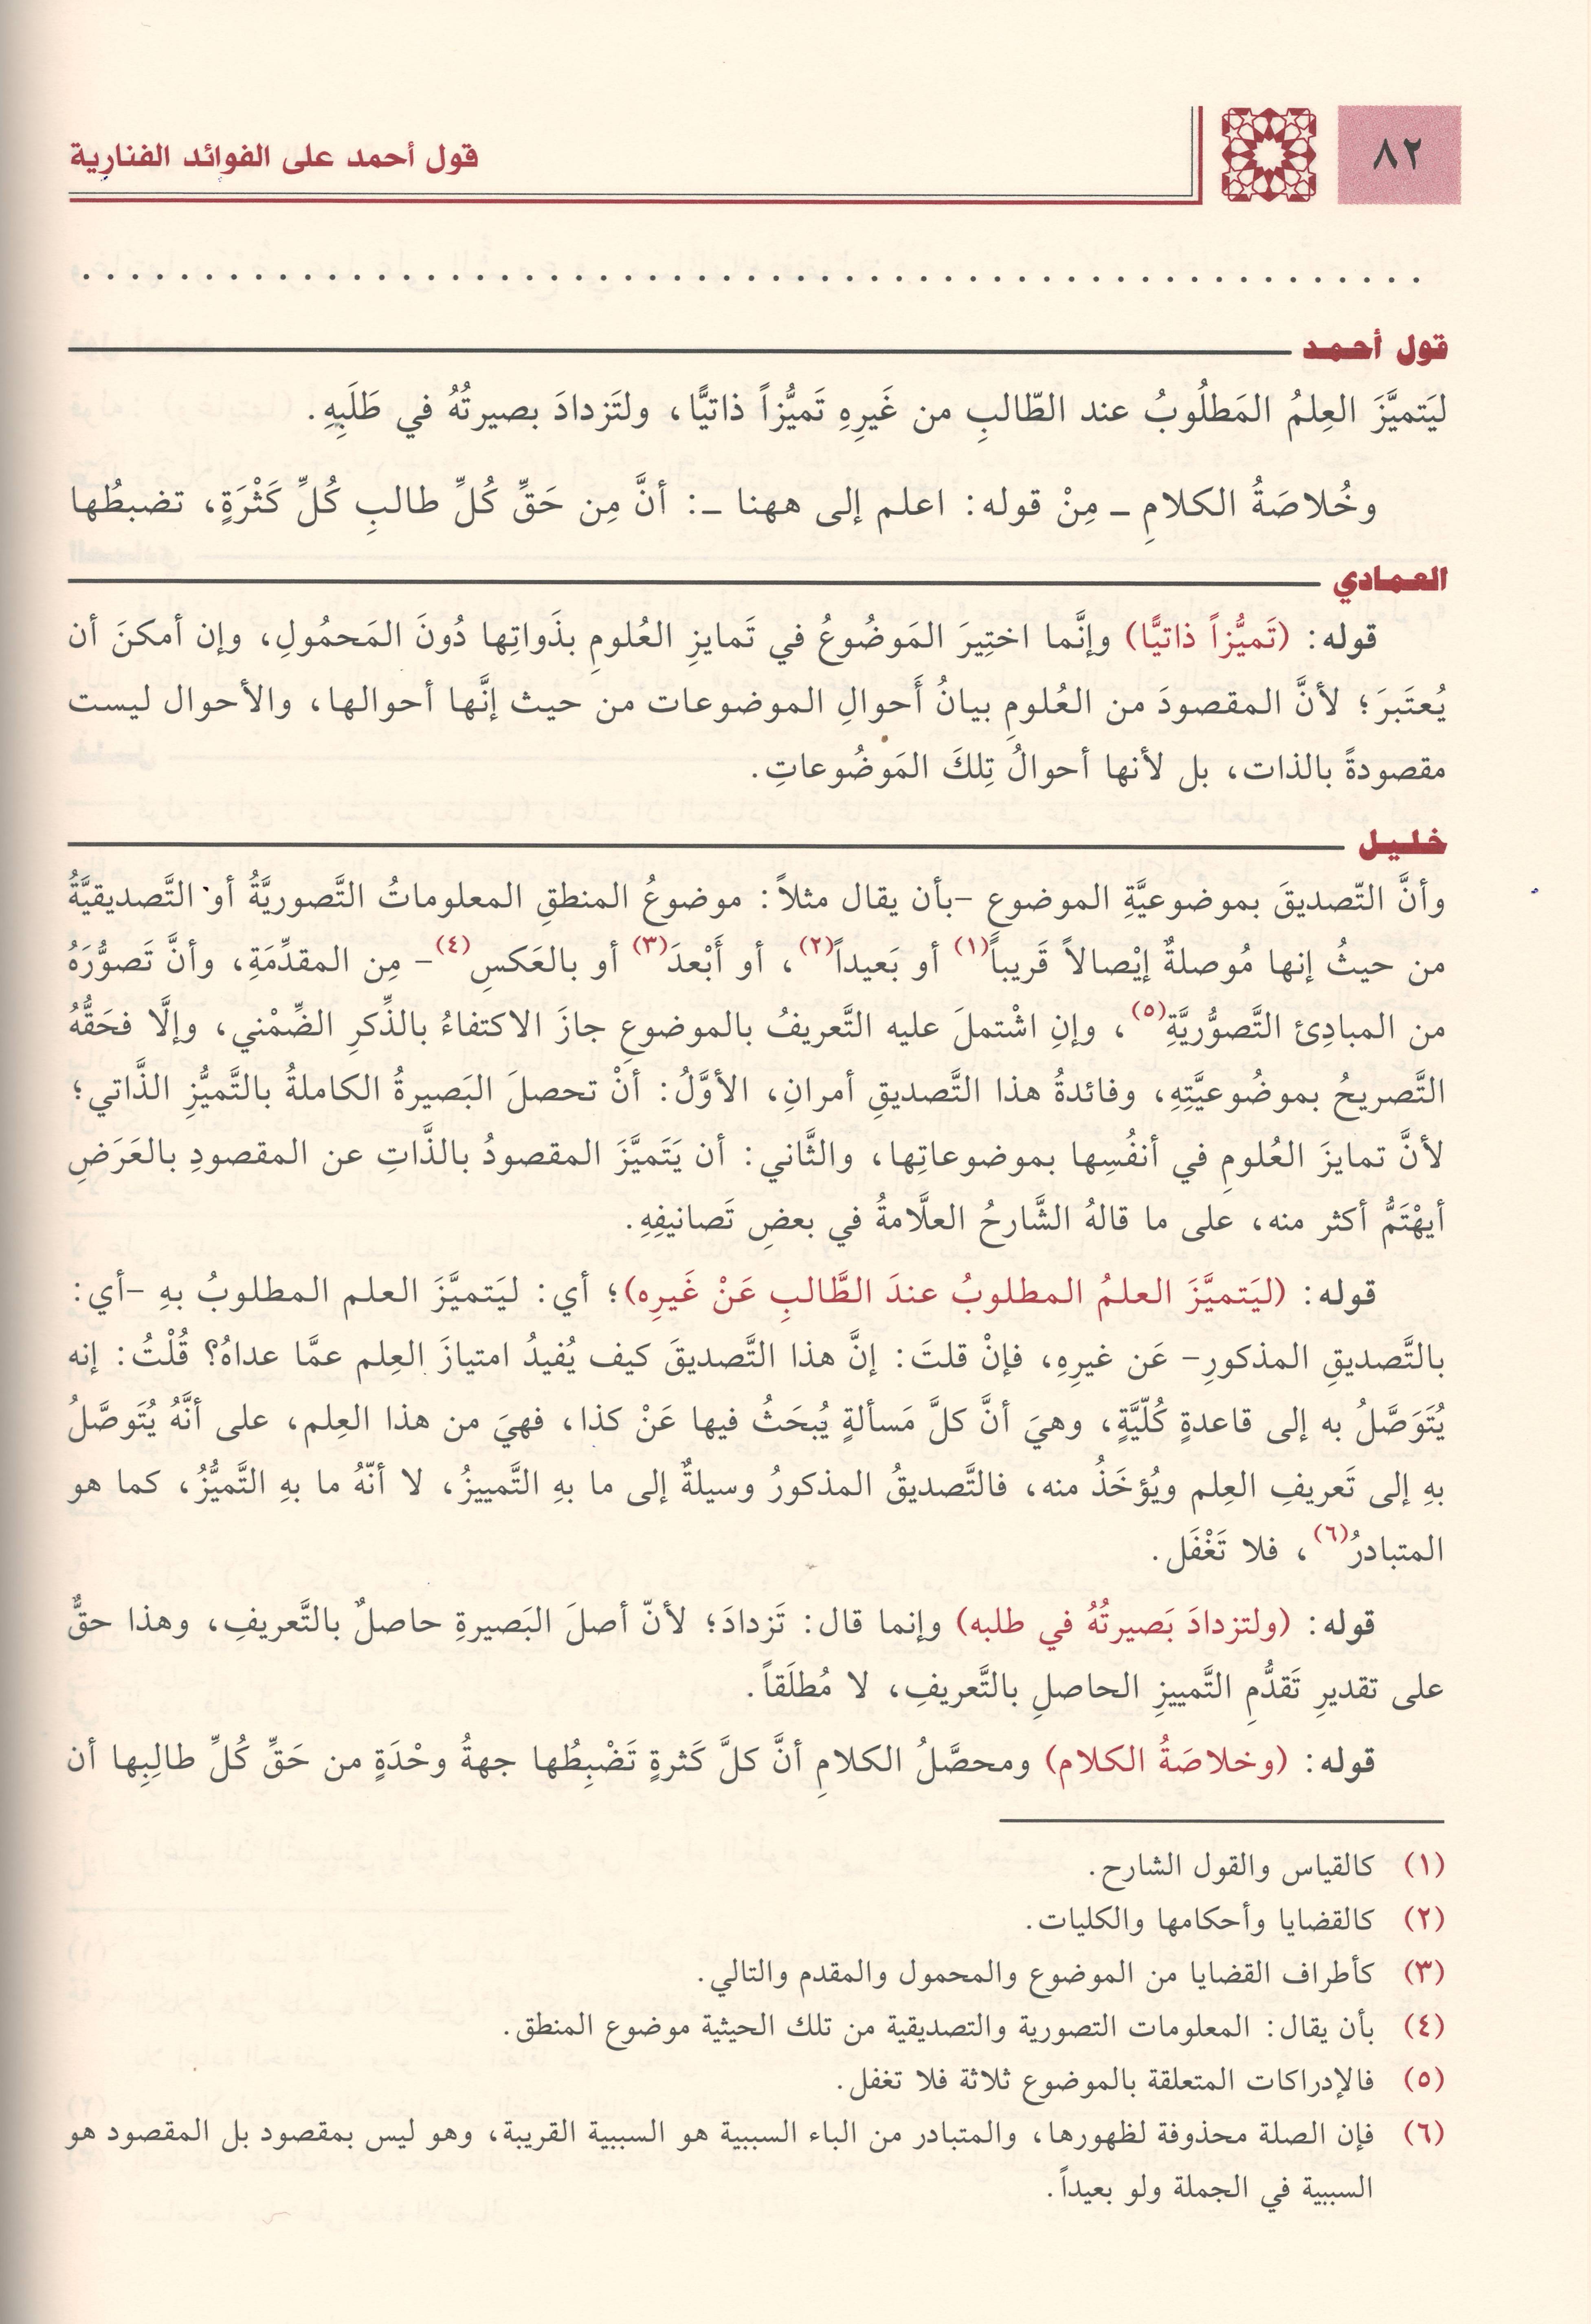 ٨٢
قول أحمد على الفوائد الفنارية
. . . . . . . . . . . . . . . . . . . . . . . . . . . . . . . . . . . . . . . . . . . . . . . . . . . . .
قول أحمد
ليَتميَّزَ العِلمُ المَطلُوبُ عند الطّالبِ من غَيرِهِ تَميُّزاً ذاتيًّا، ولتَزدادَ بصيرتُهُ في طَلَبِهِ.
وخُلاصَةُ الكلامِ ـ مِنْ قوله: اعلم إلى ههنا ـ: أنَّ مِن حَقِّ كُلِّ طالبِ كُلِّ كَثْرَةٍ، تضبطُها
العمادي
قوله: (تَميُّزاً ذاتيًّا) وإنَّما اختِيرَ المَوضُوعُ في تَمايزِ العُلومِ بذَواتِها دُونَ المَحمُولِ، وإن أمكنَ أن
يُعتَبرَ؛ لأنَّ المقصودَ من العُلومِ بيانُ أَحوالِ الموضوعات من حيث إنَّها أحوالها، والأحوال ليست
مقصودةً بالذات، بل لأنها أحوالُ تِلكَ المَوضُوعاتِ.
خليل
وأنَّ التّصديقَ بموضوعيَّةِ الموضوعِ -بأن يقال مثلاً: موضوعُ المنطقِ المعلوماتُ التَّصوريَّةُ أو التَّصديقيَّةُ
من حيثُ إنها مُوصلةٌ إيْصالاً قَريباً(١) أو بَعيداً(٢)، أو أَبْعدَ(٣) أو بالعَكسِ(٤)- مِن المقدِّمَةِ، وأنَّ تَصوُّرَهُ
من المبادِئ التَّصوُّريَّةِ(٥)، وإنِ اشْتملَ عليه التَّعريفُ بالموضوعِ جازَ الاكتفاءُ بالذِّكرِ الضِّمْني، وإلَّا فحَقُّهُ
التَّصريحُ بموضُوعيَّتِهِ، وفائدةُ هذا التَّصديقِ أمرانِ، الأوَّلُ: أنْ تحصلَ البَصيرةُ الكاملةُ بالتَّميُّزِ الذَّاتي؛
لأنَّ تمايزَ العُلومِ في أنفُسِها بموضوعاتِها، والثَّاني: أن يَتَميَّزَ المقصودُ بالذَّاتِ عن المقصودِ بالعَرَضِ
أيهْتَمُّ أكثر منه، على ما قالهُ الشَّارحُ العلَّامةُ في بعضِ تَصانيفِهِ.
قوله: (ليَتميَّزَ العلمُ المطلوبُ عندَ الطَّالبِ عَنْ غَيرِه)؛ أي: ليَتميَّزَ العلم المطلوبُ بهِ -أي:
بالتَّصديقِ المذكورِ- عَن غيرِهِ، فإنْ قلتَ: إنَّ هذا التَّصديقَ كيف يُفيدُ امتيازَ العِلم عمَّا عداهُ؟ قُلْتُ: إنه
يُتَوَصَّلُ به إلى قاعدةٍ كُلّيَّةٍ، وهيَ أنَّ كلَّ مَسألةٍ يُبحَثُ فيها عَنْ كذا، فهيَ من هذا العِلم، على أنَّهُ يُتَوصَّلُ
بهِ إلى تَعريفِ العِلم ويُؤخَذُ منه، فالتَّصديقُ المذكورُ وسيلةٌ إلى ما بهِ التَّمييزُ، لا أنّهُ ما بهِ التَّميُّزُ، كما هو
المتبادرُ(٦)، فلا تَغْفَل.
قوله: (ولتزدادَ بَصيرتُهُ في طلبه) وإنما قال: تَزدادَ؛ لأنّ أصلَ البَصيرةِ حاصلٌ بالتَّعريفِ، وهذا حقٌّ
على تقديرِ تَقدُّمِ التَّمييزِ الحاصلِ بالتَّعريفِ، لا مُطلَقاً.
قوله: (وخلاصَةُ الكلام) ومحصَّلُ الكلامِ أنَّ كلَّ كَثرةٍ تَضْبِطُها جهةُ وحْدَةٍ من حَقِّ كُلِّ طالِبِها أن
(١) كالقياس والقول الشارح.
(٢) كالقضايا وأحكامها والكليات.
(٣) كأطراف القضايا من الموضوع والمحمول والمقدم والتالي.
(٤) بأن يقال: المعلومات التصورية والتصديقية من تلك الحيثية موضوع المنطق.
(٥) فالإدراكات المتعلقة بالموضوع ثلاثة فلا تغفل.
(٦) فإن الصلة محذوفة لظهورها، والمتبادر من الباء السببية هو السببية القريبة، وهو ليس بمقصود بل المقصود هو
السببية في الجملة ولو بعيداً.